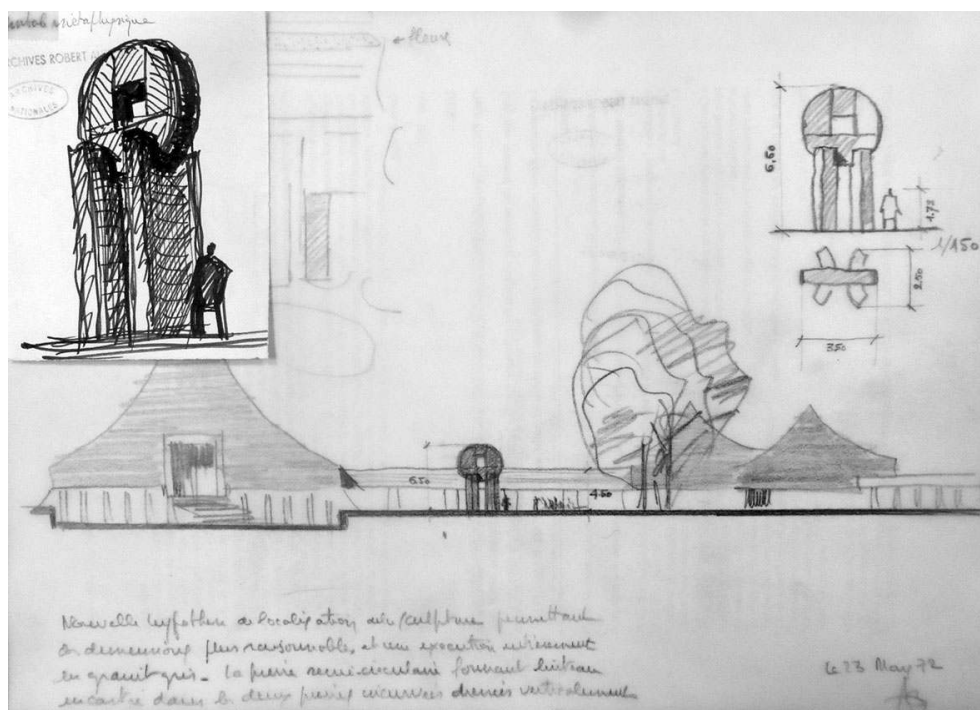 métaphysique
ARCHIVES ROBERT
ARCHIVES
NATIONALES
← fleurs
6,50
1,73
1/150
2,50
350
6.50
4.50
Nouvelle hypothèse de localisation de la sculpture permettant
des dimensions plus raisonnable, et une execution entièrement
en granit gris. La pierre semi-circulaire formant linteau
encastré dans les deux pierres incurvées dressées verticalement
Le 23 May 72